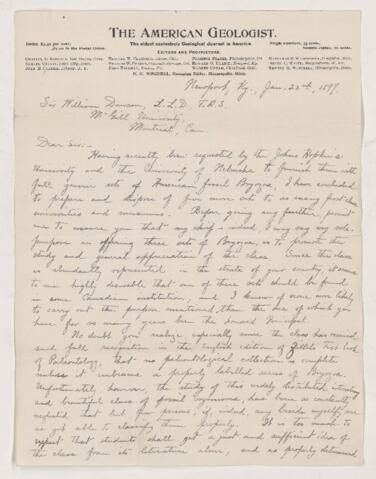 THE AMERICAN GEOLOGIST.
The oldest exclusively Geological Journal in America.
EDITORS AND PROPRIETORS.
N. H. WINCHELL, Managing Editor, Minneapolis, Minn.
Newport, Ky., Jan. 22nd, 1897.
Sir William Dawson, L.L.D. F.R.S.
McGill University,
Montreal, Can.
Dear Sir:—
Having recently been requested by the Johns Hopkins
University and the University of Nebraska to furnish them with
full generic sets of American fossil Bryozoa, I have concluded
to prepare and dispose of five more sets to as many first class
universities and museums. Before going any further, permit
me to assure you that my chief – indeed, I may say my sole –
purpose in offering these sets of Bryozoa, is to promote the
study and general appreciation of the class. Since this class
is abundantly represented in the strata of your country, it seems
to me highly desirable that one of these sets should be found
in some Canadian institution, and I know of none more likely
to carry out the purpose mentioned than the one of which you
have for so many years been the honored Principal.
No doubt you realize, especially since the class has received
such full recognition in the english edition of Zittels Text book
of Paleontology, that no paleontological collection is complete
unless it embraces a properly labelled series of Bryozoa.
Unfortunately, however, the study of this widely distributed, interesting
and beautiful class of fossil organisms, has been so constantly
neglected that but few persons, if, indeed, any beside myself, are
as yet able to classify them properly. It is too much to
expect that students shall get a just and sufficient idea of
the class from its literature alone, and as properly determined